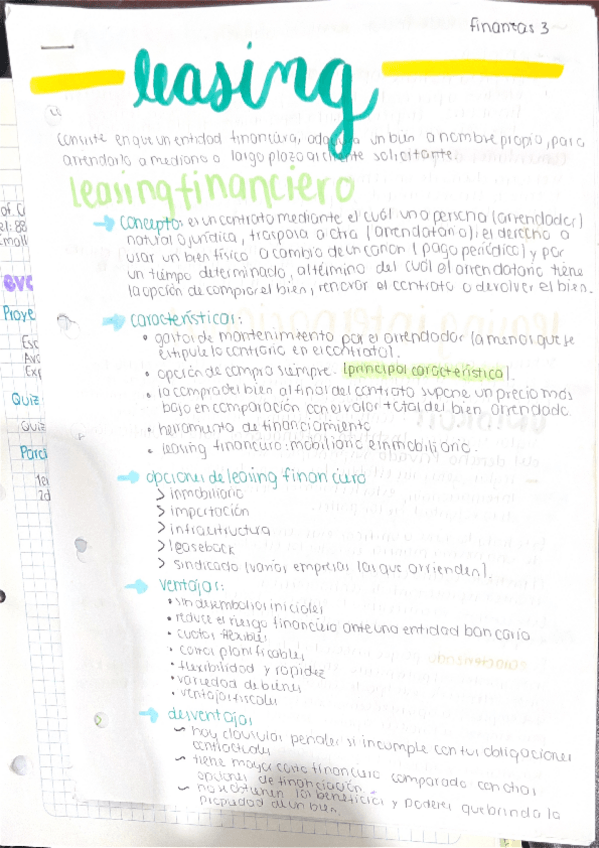 finanzas 3
leasing
Consiste en que un entidad financiera, adquiera un bien a nombre propio, para
arrendarlo a mediano o largo plazo al cliente solicitante.
leasing financiero
concepto: es un contrato mediante el cuál una persona (arrendador)
natural o jurídica, traspasa a otra (arrendatario), el derecho a
usar un bien físico a cambio de un canon (pago periódico) y por
un tiempo determinado, al término del cuál el arrendatario tiene
la opción de comprar el bien, renovar el contrato o devolver el bien.
características:
• gastos de mantenimiento por el arrendador (a menos que se
estipule lo contrario en el contrato).
• opción de compra siempre. (principal característica).
• la compra del bien al final del contrato supone un precio más
bajo en comparación con el valor total del bien arrendado.
• herramienta de financiamiento
• leasing financiero: mobiliario e inmobiliario.
opciones de leasing financiero
> inmobiliario
> importación
> infraestructura
> leaseback
> sindicado (varias empresas las que arrienden).
ventajas:
• sin desembolsos iniciales
• reduce el riesgo financiero ante una entidad bancaria
• cuotas flexibles
• costos planificables
• flexibilidad y rapidez
• variedad de bienes
• ventajas fiscales
desventajas
~ hay clausulas penales si incumple con tus obligaciones
contractuales
~ tiene mayor costo financiero comparado con otras
opciones de financiación.
~ no se obtienen los beneficios y poderes que brinda la
propiedad de un bien.
of. C
el: 88
Email
eva
Proye
Esc
Ava
Exp
Quiz
Quiz
Parci
1er
2d